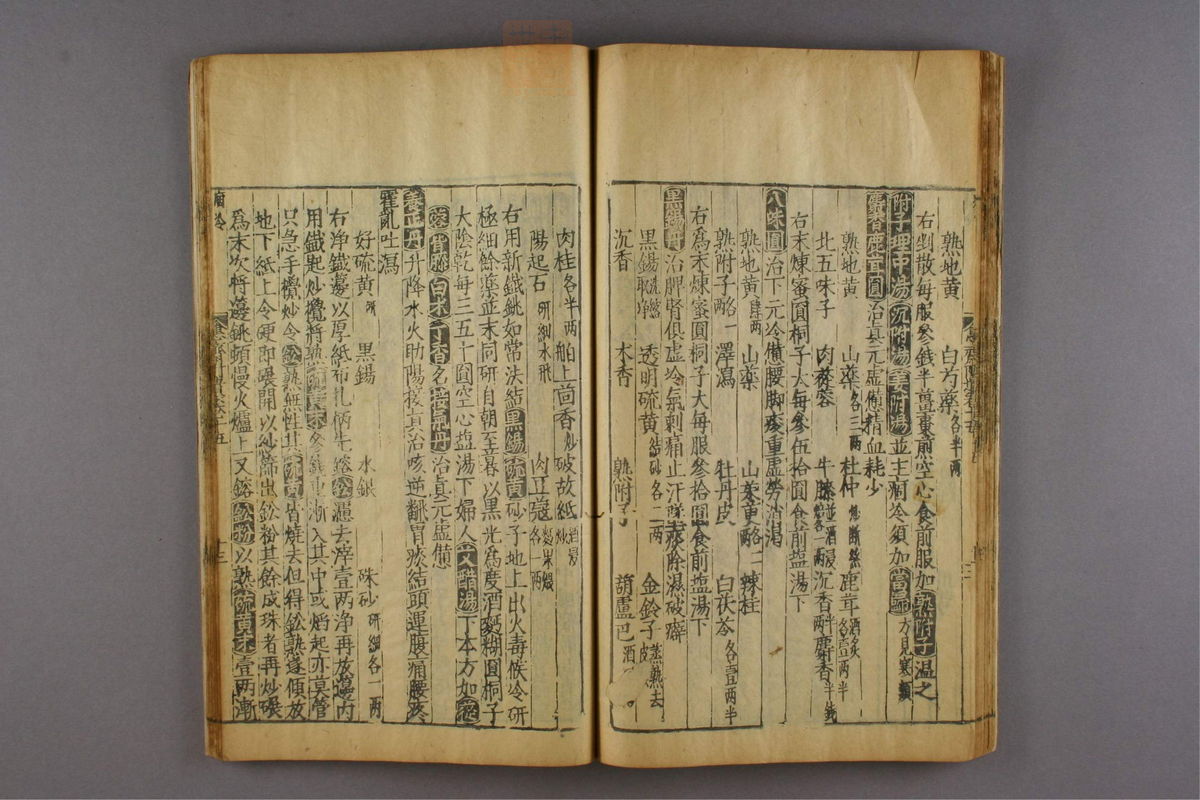 熟地黄 白芍藥各半兩
右剉散每服參錢半薑棗煎空心食前服加熟附子温之
附子理中湯沉附湯羌附湯並主痼冷須加當歸方見寒類
麝香鹿茸圓治真元虚憊精血耗少
熟地黄 山藥各三兩 杜仲炒斷絲 鹿茸酒炙各壹兩半
北五味子 肉蓯蓉 牛膝並酒浸各一兩 沉香半兩 麝香半錢
右末煉蜜圓桐子大每參伍拾圓食前塩湯下
八味圓治下元冷憊腰脚痠重虚勞消渴
熟地黄肆兩 山藥 山茱萸各二 辣桂
熟附子各一 澤瀉 牡丹皮 白茯苓各壹兩半
右爲末煉蜜圓桐子大每服參拾圓食前塩湯下
黑錫丹治脾腎俱虚冷氣刺痛止汗除濕破癖
黑錫取淨 透明硫黄結砂各二兩 金鈴子蒸熟去皮
沉香 木香 熟附子 葫蘆巴酒
肉桂各半兩 舶上茴香炒 破故紙酒浸炒
陽起石研細水飛 肉豆蔻各一兩
右用新鐵銚如常法結黑錫硫黄砂子地上出火毒候冷研
極細餘藥並末同研自朝至暮以黑光爲度酒麵糊圓桐子
大陰乾每三五十圓空心塩湯下婦人艾醋湯下本方加蓯
蓉牛膝白朮丁香名接氣丹治真元虚憊
養正丹升降水火助陽接真治咳逆翻胃痰結頭運腹痛腰疼
霍亂吐瀉
好硫黄研 黑錫 水銀 硃砂研細各一兩
右淨鐵盞以厚紙布扎柄先鎔鉛濾去滓壹兩淨再放盞内
用鐵匙炒攪將熟硫黄末參錢重漸入其中或焰起亦莫管
只急手攪炒令鉛熟無性其硫黄皆燒去但得鉛熟遂傾放
地下紙上令硬即碾開以紗篩出鉛粉其餘成珠者再炒碾
爲末次將盞銚頓慢火爐上又鎔鉛粉以熟硫黄末壹兩漸
痼冷